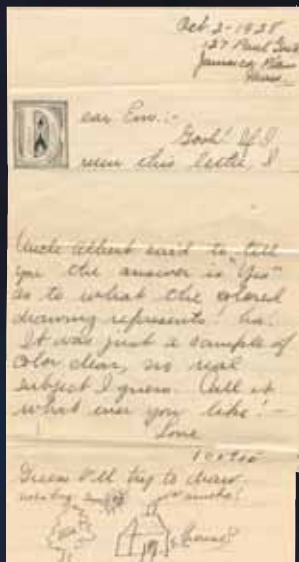 Oct 2 - 1928
127 Paul Gore
Jamaica Plain
Mass
Dear Em:-
Gosh! If I
ruin this letter, I
Uncle Albert said to tell
you the answer is "Yes"
as to what the colored
drawing represents! ha!
It was just a sample of
color dear, no real
subject I guess. Call it
what ever you like! -
Love
Guess I'll try to draw
smoke!
house